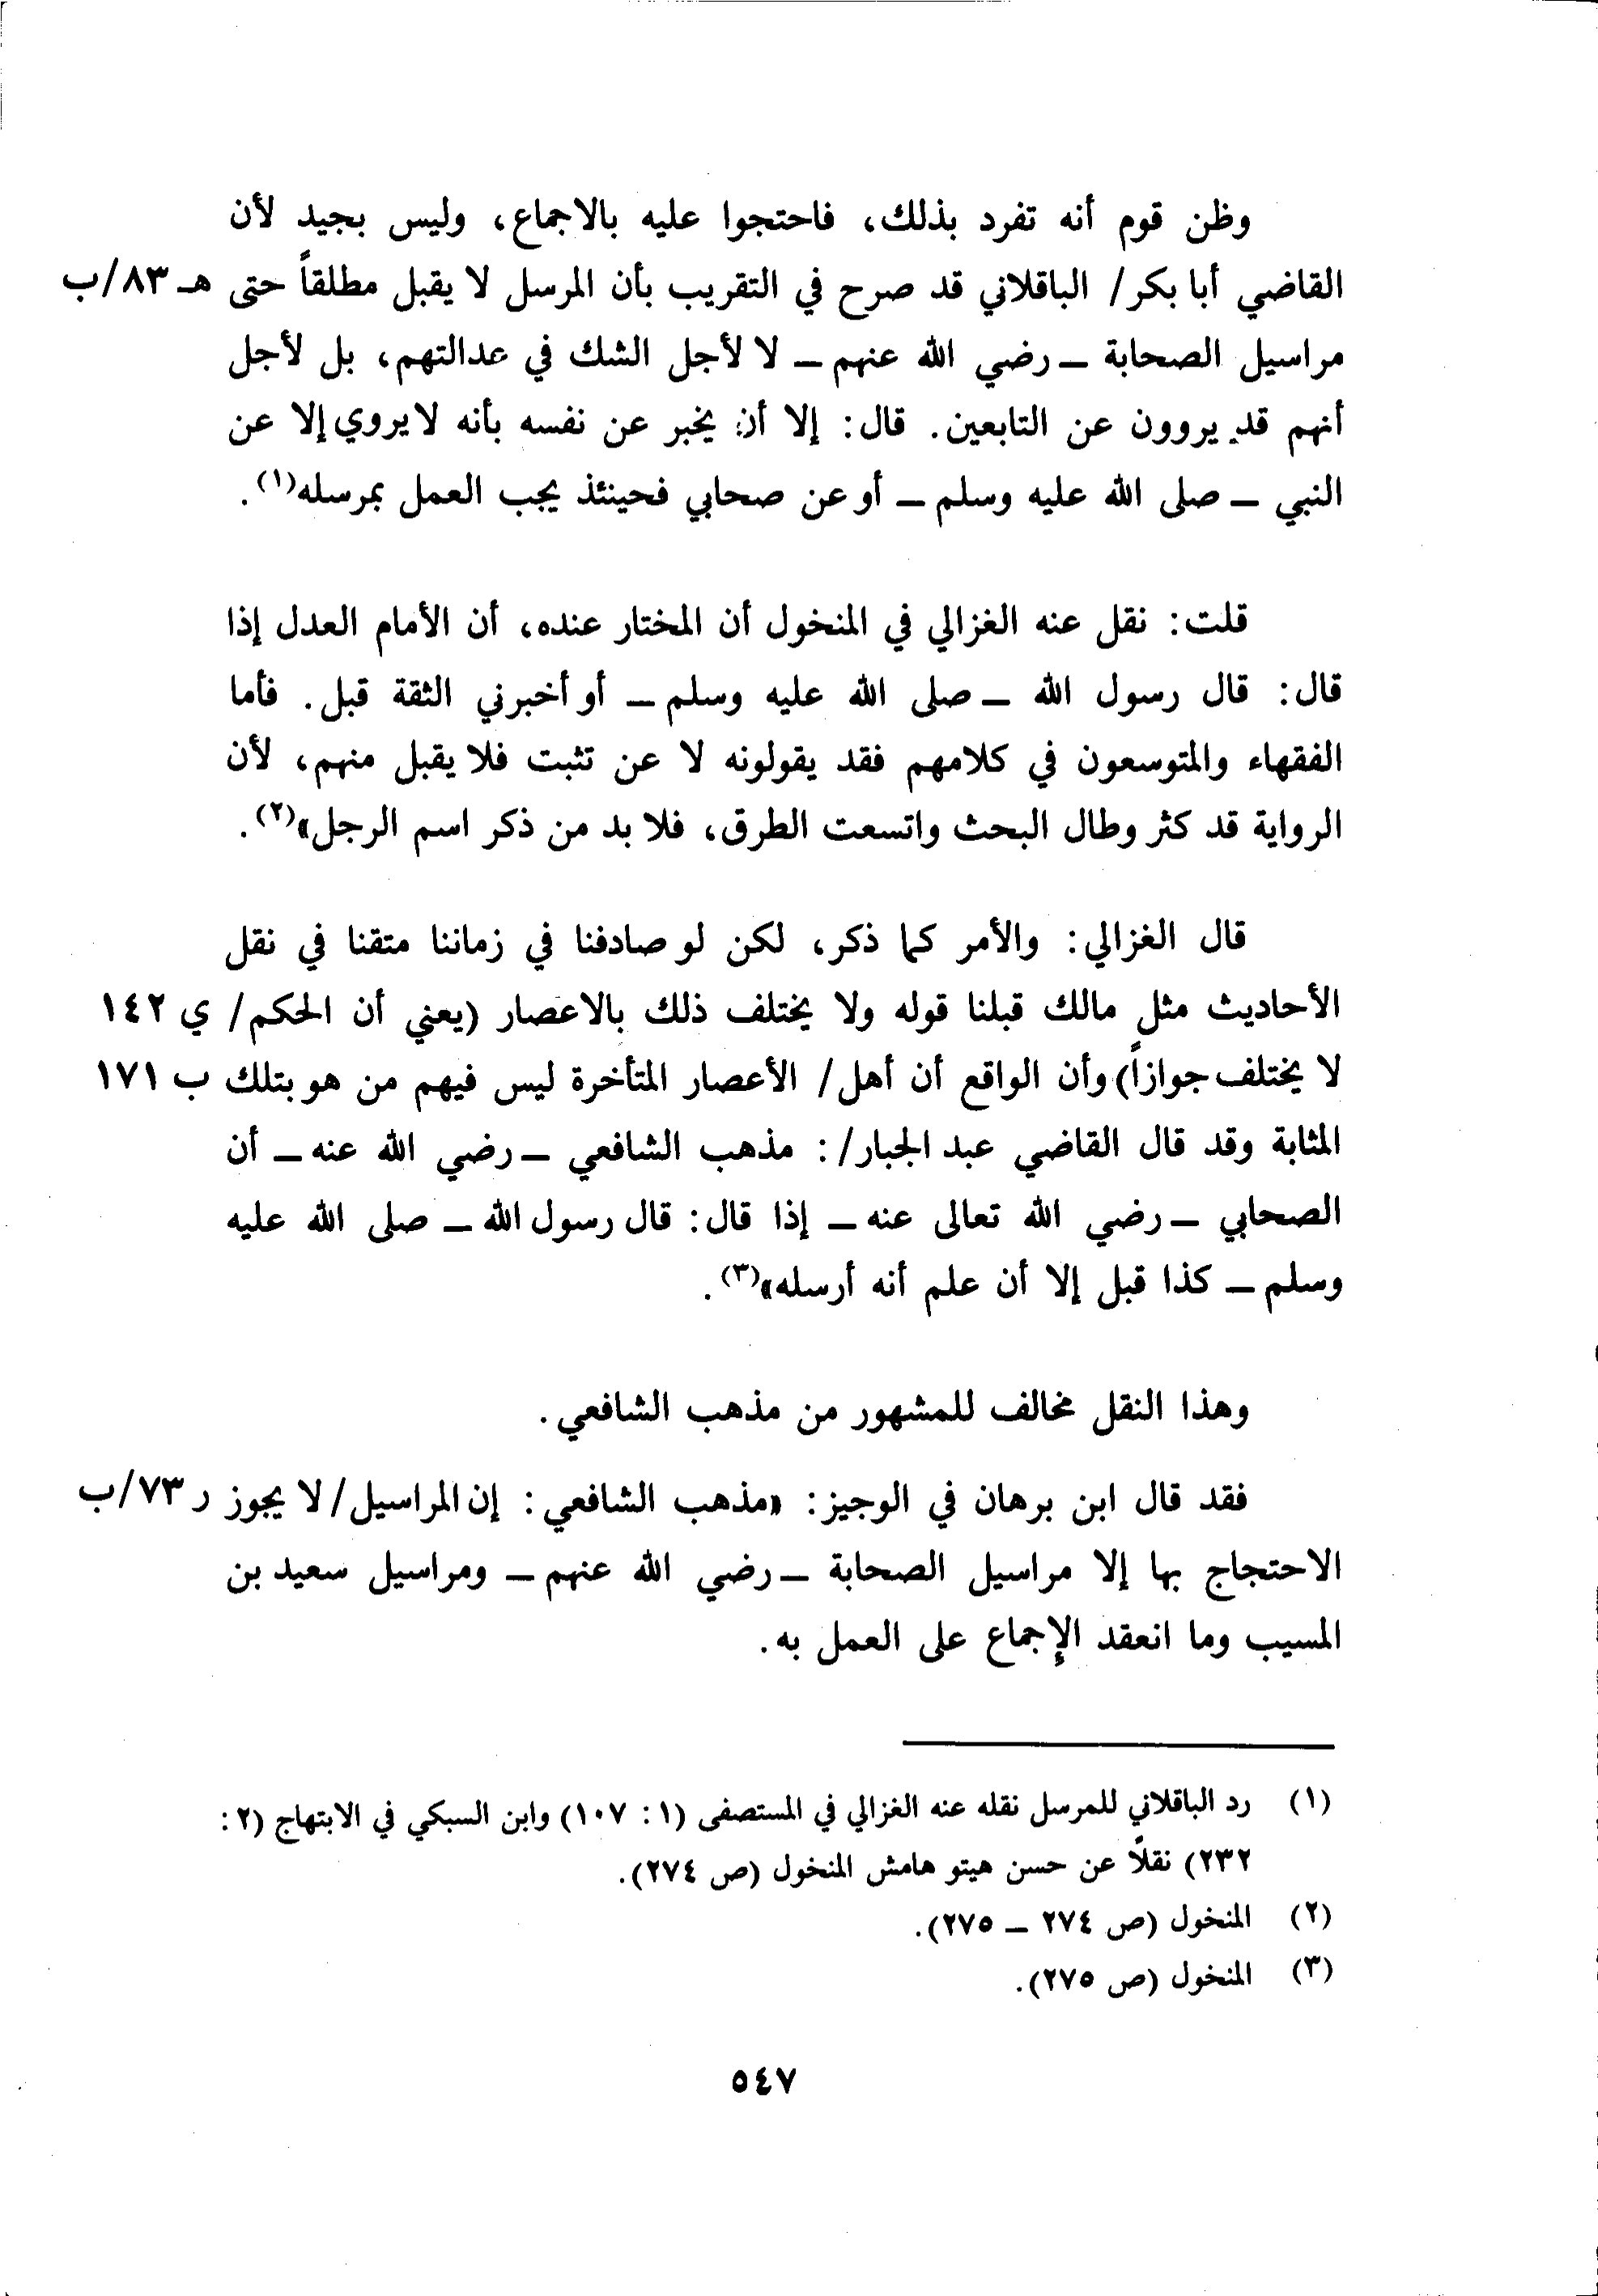 وظن قوم أنه تفرد بذلك، فاحتجوا عليه بالاجماع، وليس بجيد لأن
القاضي أبا بكر/ الباقلاني قد صرح في التقريب بأن المرسل لا يقبل مطلقاً حتى هـ ٨٣/ب
مراسيل الصحابة ــ رضي الله عنهم ــ لا لأجل الشك في عدالتهم، بل لأجل
أنهم قد يروون عن التابعين. قال: إلا أن يخبر عن نفسه بأنه لا يروي إلا عن
النبي ــ صلى الله عليه وسلم ــ أو عن صحابي فحينئذ يجب العمل بمرسله(١).
قلت: نقل عنه الغزالي في المنخول أن المختار عنده، أن الأمام العدل إذا
قال: قال رسول الله ــ صلى الله عليه وسلم ــ أو أخبرني الثقة قبل. فأما
الفقهاء والمتوسعون في كلامهم فقد يقولونه لا عن تثبت فلا يقبل منهم، لأن
الرواية قد كثر وطال البحث واتسعت الطرق، فلا بد من ذكر اسم الرجل»(٢).
قال الغزالي: والأمر كما ذكر، لكن لو صادفنا في زماننا متقنا في نقل
الأحاديث مثل مالك قبلنا قوله ولا يختلف ذلك بالاعصار (يعني أن الحكم/ ي ١٤٢
لا يختلف جوازاً) وأن الواقع أن أهل/ الأعصار المتأخرة ليس فيهم من هو بتلك ب ١٧١
المثابة وقد قال القاضي عبد الجبار/: مذهب الشافعي ــ رضي الله عنه ــ أن
الصحابي ــ رضي الله تعالى عنه ــ إذا قال: قال رسول الله ــ صلى الله عليه
وسلم ــ كذا قبل إلا أن علم أنه أرسله»(٣).
وهذا النقل مخالف للمشهور من مذهب الشافعي.
فقد قال ابن برهان في الوجيز: «مذهب الشافعي: إن المراسيل/ لا يجوز ر ٧٣/ب
الاحتجاج بها إلا مراسيل الصحابة ــ رضي الله عنهم ــ ومراسيل سعيد بن
المسيب وما انعقد الإجماع على العمل به.
(١) رد الباقلاني للمرسل نقله عنه الغزالي في المستصفى (١: ١٠٧) وابن السبكي في الابتهاج (٢:
٢٣٢) نقلاً عن حسن هيتو هامش المنخول (ص ٢٧٤).
(٢) المنخول (ص ٢٧٤ ــ ٢٧٥).
(٣) المنخول (ص ٢٧٥).
٥٤٧